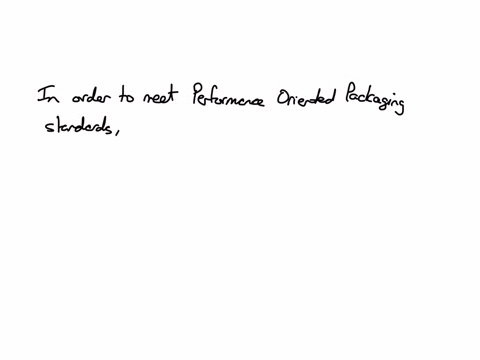 In order to meet Performance Oriented Packaging
standards,